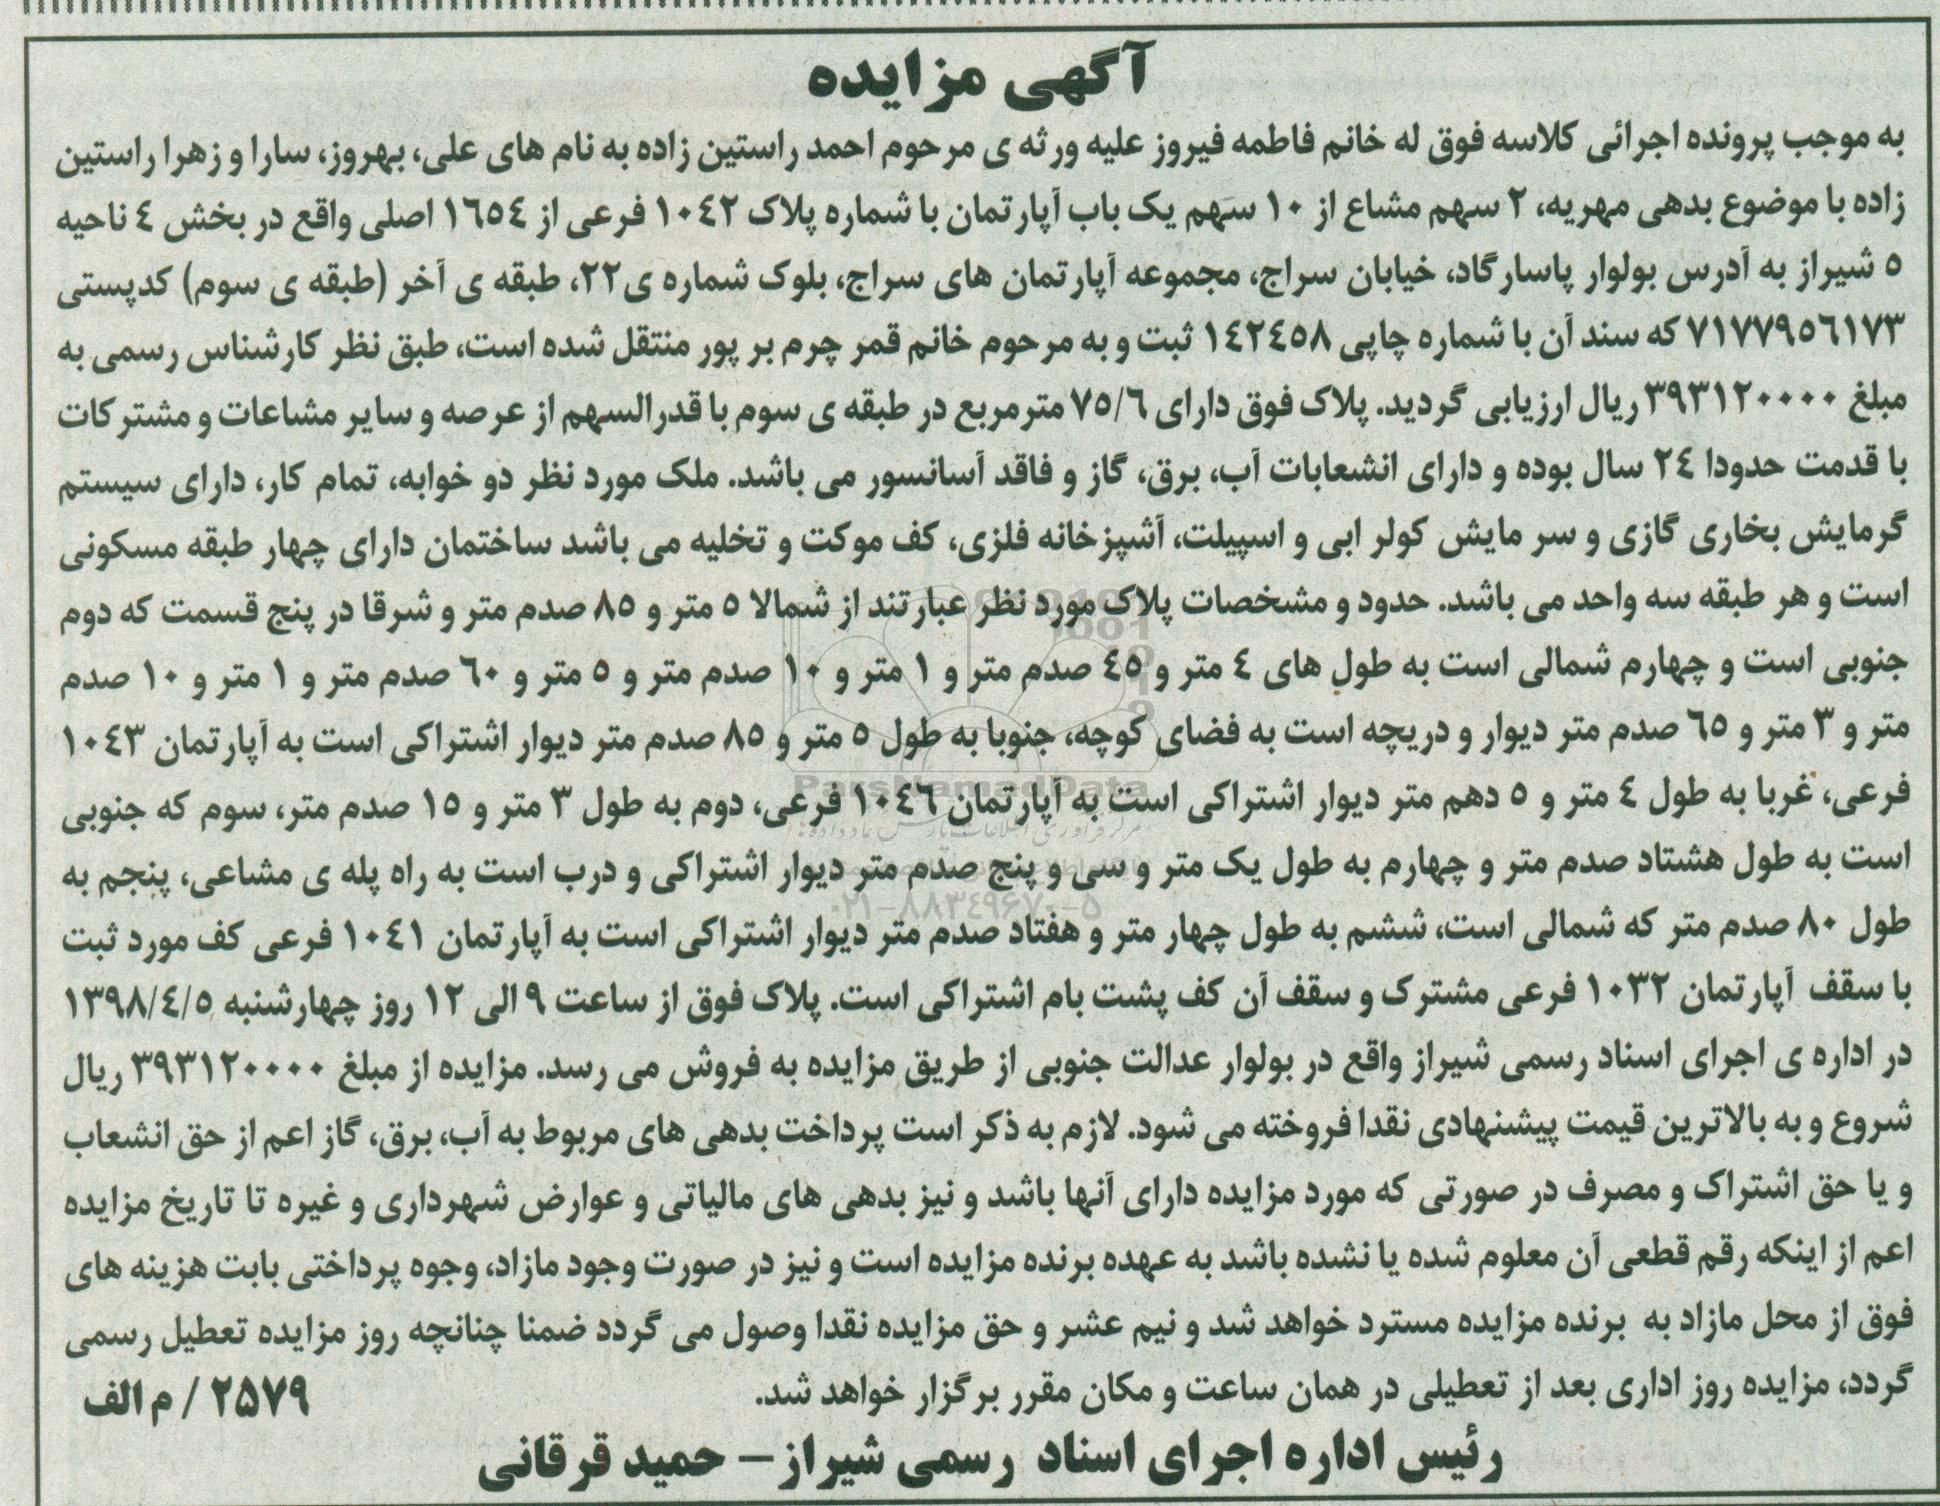 آگهی مزایده
به موجب پرونده اجرائی کلاسه فوق له خانم فاطمه فیروز علیه ورثه ی مرحوم احمد راستین زاده به نام های علی، بهروز، سارا و زهرا راستین
زاده با موضوع بدهی مهریه، ۲ سهم مشاع از ۱۰ سهم یک باب آپارتمان با شماره پلاک ۱۰٤۲ فرعی از ۱٦٥٤ اصلی واقع در بخش ٤ ناحیه
٥ شیراز به آدرس بولوار پاسارگاد، خیابان سراج، مجموعه آپارتمان های سراج، بلوک شماره ی۲۲، طبقه ی آخر (طبقه ی سوم) کدپستی
۷۱۷۷۹٥٦۱۷۳ که سند آن با شماره چاپی ۱٤۲٤٥۸ ثبت و به مرحوم خانم قمر چرم بر پور منتقل شده است، طبق نظر کارشناس رسمی به
مبلغ ۳۹۳۱۲۰۰۰۰ ریال ارزیابی گردید. پلاک فوق دارای ۷٥/٦ مترمربع در طبقه ی سوم با قدرالسهم از عرصه و سایر مشاعات و مشترکات
با قدمت حدودا ۲٤ سال بوده و دارای انشعابات آب، برق، گاز و فاقد آسانسور می باشد. ملک مورد نظر دو خوابه، تمام کار، دارای سیستم
گرمایش بخاری گازی و سر مایش کولر ابی و اسپیلت، آشپزخانه فلزی، کف موکت و تخلیه می باشد ساختمان دارای چهار طبقه مسکونی
است و هر طبقه سه واحد می باشد. حدود و مشخصات پلاک مورد نظر عبارتند از شمالا ٥ متر و ۸٥ صدم متر و شرقا در پنج قسمت که دوم
جنوبی است و چهارم شمالی است به طول های ٤ متر و ٤٥ صدم متر و ۱ متر و ۱۰ صدم متر و ٥ متر و ٦۰ صدم متر و ۱ متر و ۱۰ صدم
متر و ۳ متر و ٦٥ صدم متر دیوار و دریچه است به فضای کوچه، جنوبا به طول ٥ متر و ۸٥ صدم متر دیوار اشتراکی است به آپارتمان ۱۰٤۳
فرعی، غربا به طول ٤ متر و ٥ دهم متر دیوار اشتراکی است به آپارتمان ۱۰٤٦ فرعی، دوم به طول ۳ متر و ۱٥ صدم متر، سوم که جنوبی
است به طول هشتاد صدم متر و چهارم به طول یک متر و سی و پنج صدم متر دیوار اشتراکی و درب است به راه پله ی مشاعی، پنجم به
طول ۸۰ صدم متر که شمالی است، ششم به طول چهار متر و هفتاد صدم متر دیوار اشتراکی است به آپارتمان ۱۰٤۱ فرعی کف مورد ثبت
با سقف آپارتمان ۱۰۳۲ فرعی مشترک و سقف آن کف پشت بام اشتراکی است. پلاک فوق از ساعت ۹ الی ۱۲ روز چهارشنبه ۱۳۹۸/٤/٥
در اداره ی اجرای اسناد رسمی شیراز واقع در بولوار عدالت جنوبی از طریق مزایده به فروش می رسد. مزایده از مبلغ ۳۹۳۱۲۰۰۰۰ ریال
شروع و به بالاترین قیمت پیشنهادی نقدا فروخته می شود. لازم به ذکر است پرداخت بدهی های مربوط به آب، برق، گاز اعم از حق انشعاب
و یا حق اشتراک و مصرف در صورتی که مورد مزایده دارای آنها باشد و نیز بدهی های مالیاتی و عوارض شهرداری و غیره تا تاریخ مزایده
اعم از اینکه رقم قطعی آن معلوم شده یا نشده باشد به عهده برنده مزایده است و نیز در صورت وجود مازاد، وجوه پرداختی بابت هزینه های
فوق از محل مازاد به برنده مزایده مسترد خواهد شد و نیم عشر و حق مزایده نقدا وصول می گردد ضمنا چنانچه روز مزایده تعطیل رسمی
گردد، مزایده روز اداری بعد از تعطیلی در همان ساعت و مکان مقرر برگزار خواهد شد.
۲۵۷۹ / م الف
رئیس اداره اجرای اسناد رسمی شیراز – حمید قرقانی
ParsNamadData
۰۲۱-۸۸۳٤۹۶۷۰-۵